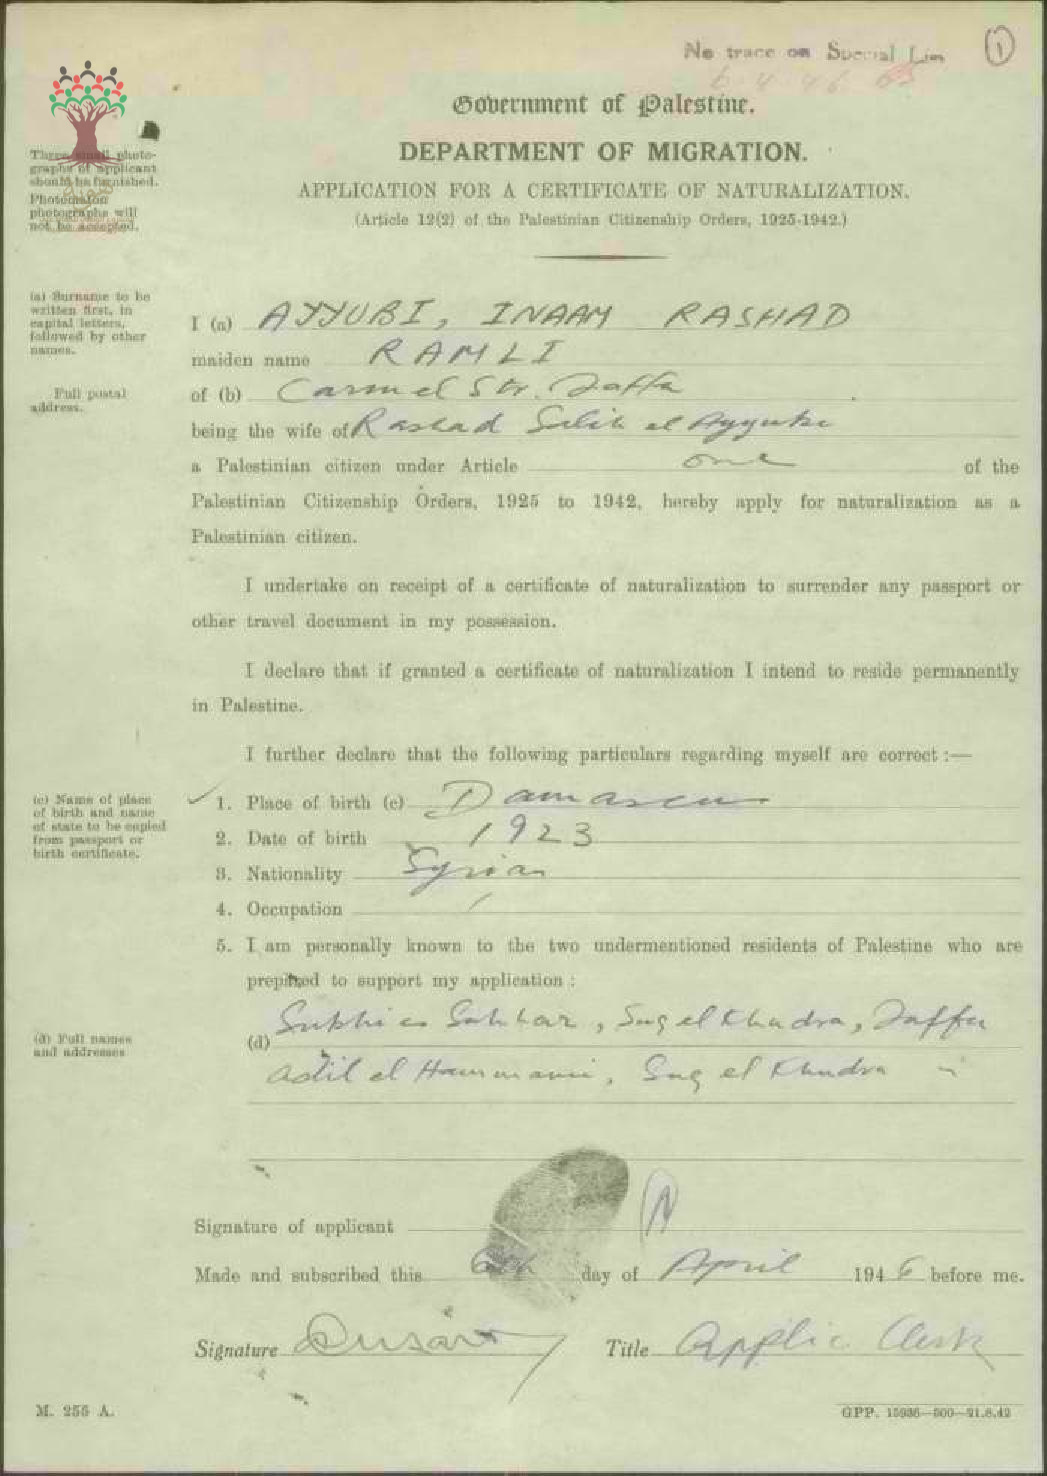 No trace on Special
1
6.4.46
Government of Palestine.
DEPARTMENT OF MIGRATION.
APPLICATION FOR A CERTIFICATE OF NATURALIZATION.
(Article 12(2) of the Palestinian Citizenship Orders, 1925-1942.)
Three small photo-
graphs of applicant
should be furnished.
Photomaton
photographs will
not be accepted.
(a) Surname to be
written first, in
capital letters,
followed by other
names.
I (a) AYYUBI, INAAM RASHAD
maiden name RAMLI
Full postal
address.
of (b) Carmel Str. Jaffa
being the wife of Rashad Salih el Ayyubi
a Palestinian citizen under Article one of the
Palestinian Citizenship Orders, 1925 to 1942, hereby apply for naturalization as a
Palestinian citizen.
I undertake on receipt of a certificate of naturalization to surrender any passport or
other travel document in my possession.
I declare that if granted a certificate of naturalization I intend to reside permanently
in Palestine.
I further declare that the following particulars regarding myself are correct :—
(c) Name of place
of birth and name
of state to be copied
from passport or
birth certificate.
1. Place of birth (c) Damascus
2. Date of birth 1923
3. Nationality Syrian
4. Occupation /
5. I am personally known to the two undermentioned residents of Palestine who are
prepared to support my application :
(d) Full names
and addresses
(d) Subhi es Sakhar, Suq el Khudra, Jaffa
Adil el Hammami, Suq el Khudra "
Signature of applicant
Made and subscribed this 6th day of April 1946 before me.
Signature Title Applic Clerk
M. 256 A.
GPP. 15936—500—21.8.42